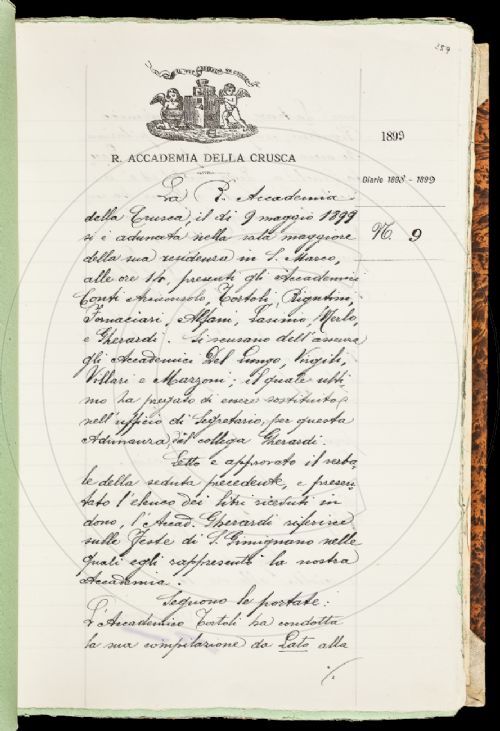 289
IL PIÙ BEL FIOR NE COGLIE
1899
R. ACCADEMIA DELLA CRUSCA
Diario 1898 - 1899
La R. Accademia
della Crusca, il dì 9 maggio 1899
N. 9
si è adunata nella sala maggiore
della sua residenza in S. Marco,
alle ore 14. presenti gli Accademici
Conti Arciconsolo, Tortoli, Rigutini,
Fornaciari, Alfani, Tasimio Merlo,
e Gherardi. Si scusano dell'assenza
gli Accademici Del Lungo, Virgili,
Villari e Mazzoni; il quale ulti-
mo ha pregato di essere sostituito
nell'ufficio di Segretario, per questa
Adunanza dal collega Gherardi.
Letto e approvato il verba-
le della seduta precedente, e presen-
tato l'elenco dei libri ricevuti in
dono, l'Accad. Gherardi riferisce
sulle Feste di S. Gimignano nelle
quali egli rappresentò la nostra
Accademia.
Seguono le portate:
L'Accademico Tortoli ha condotta
la sua compilazione da Lato alla
./.